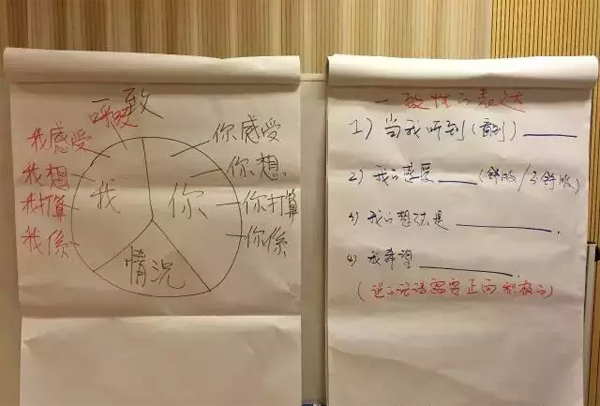 致
我感受
我想
我打算
我係
我
你
情况
你感受
你想
你打算
你係
一致性的表达
1) 当我听到(看到)
2) 我的感受 (舒服/不舒服)
3) 我的想法是 .
4) 我希望 .
(说的话语需要正向积极的)